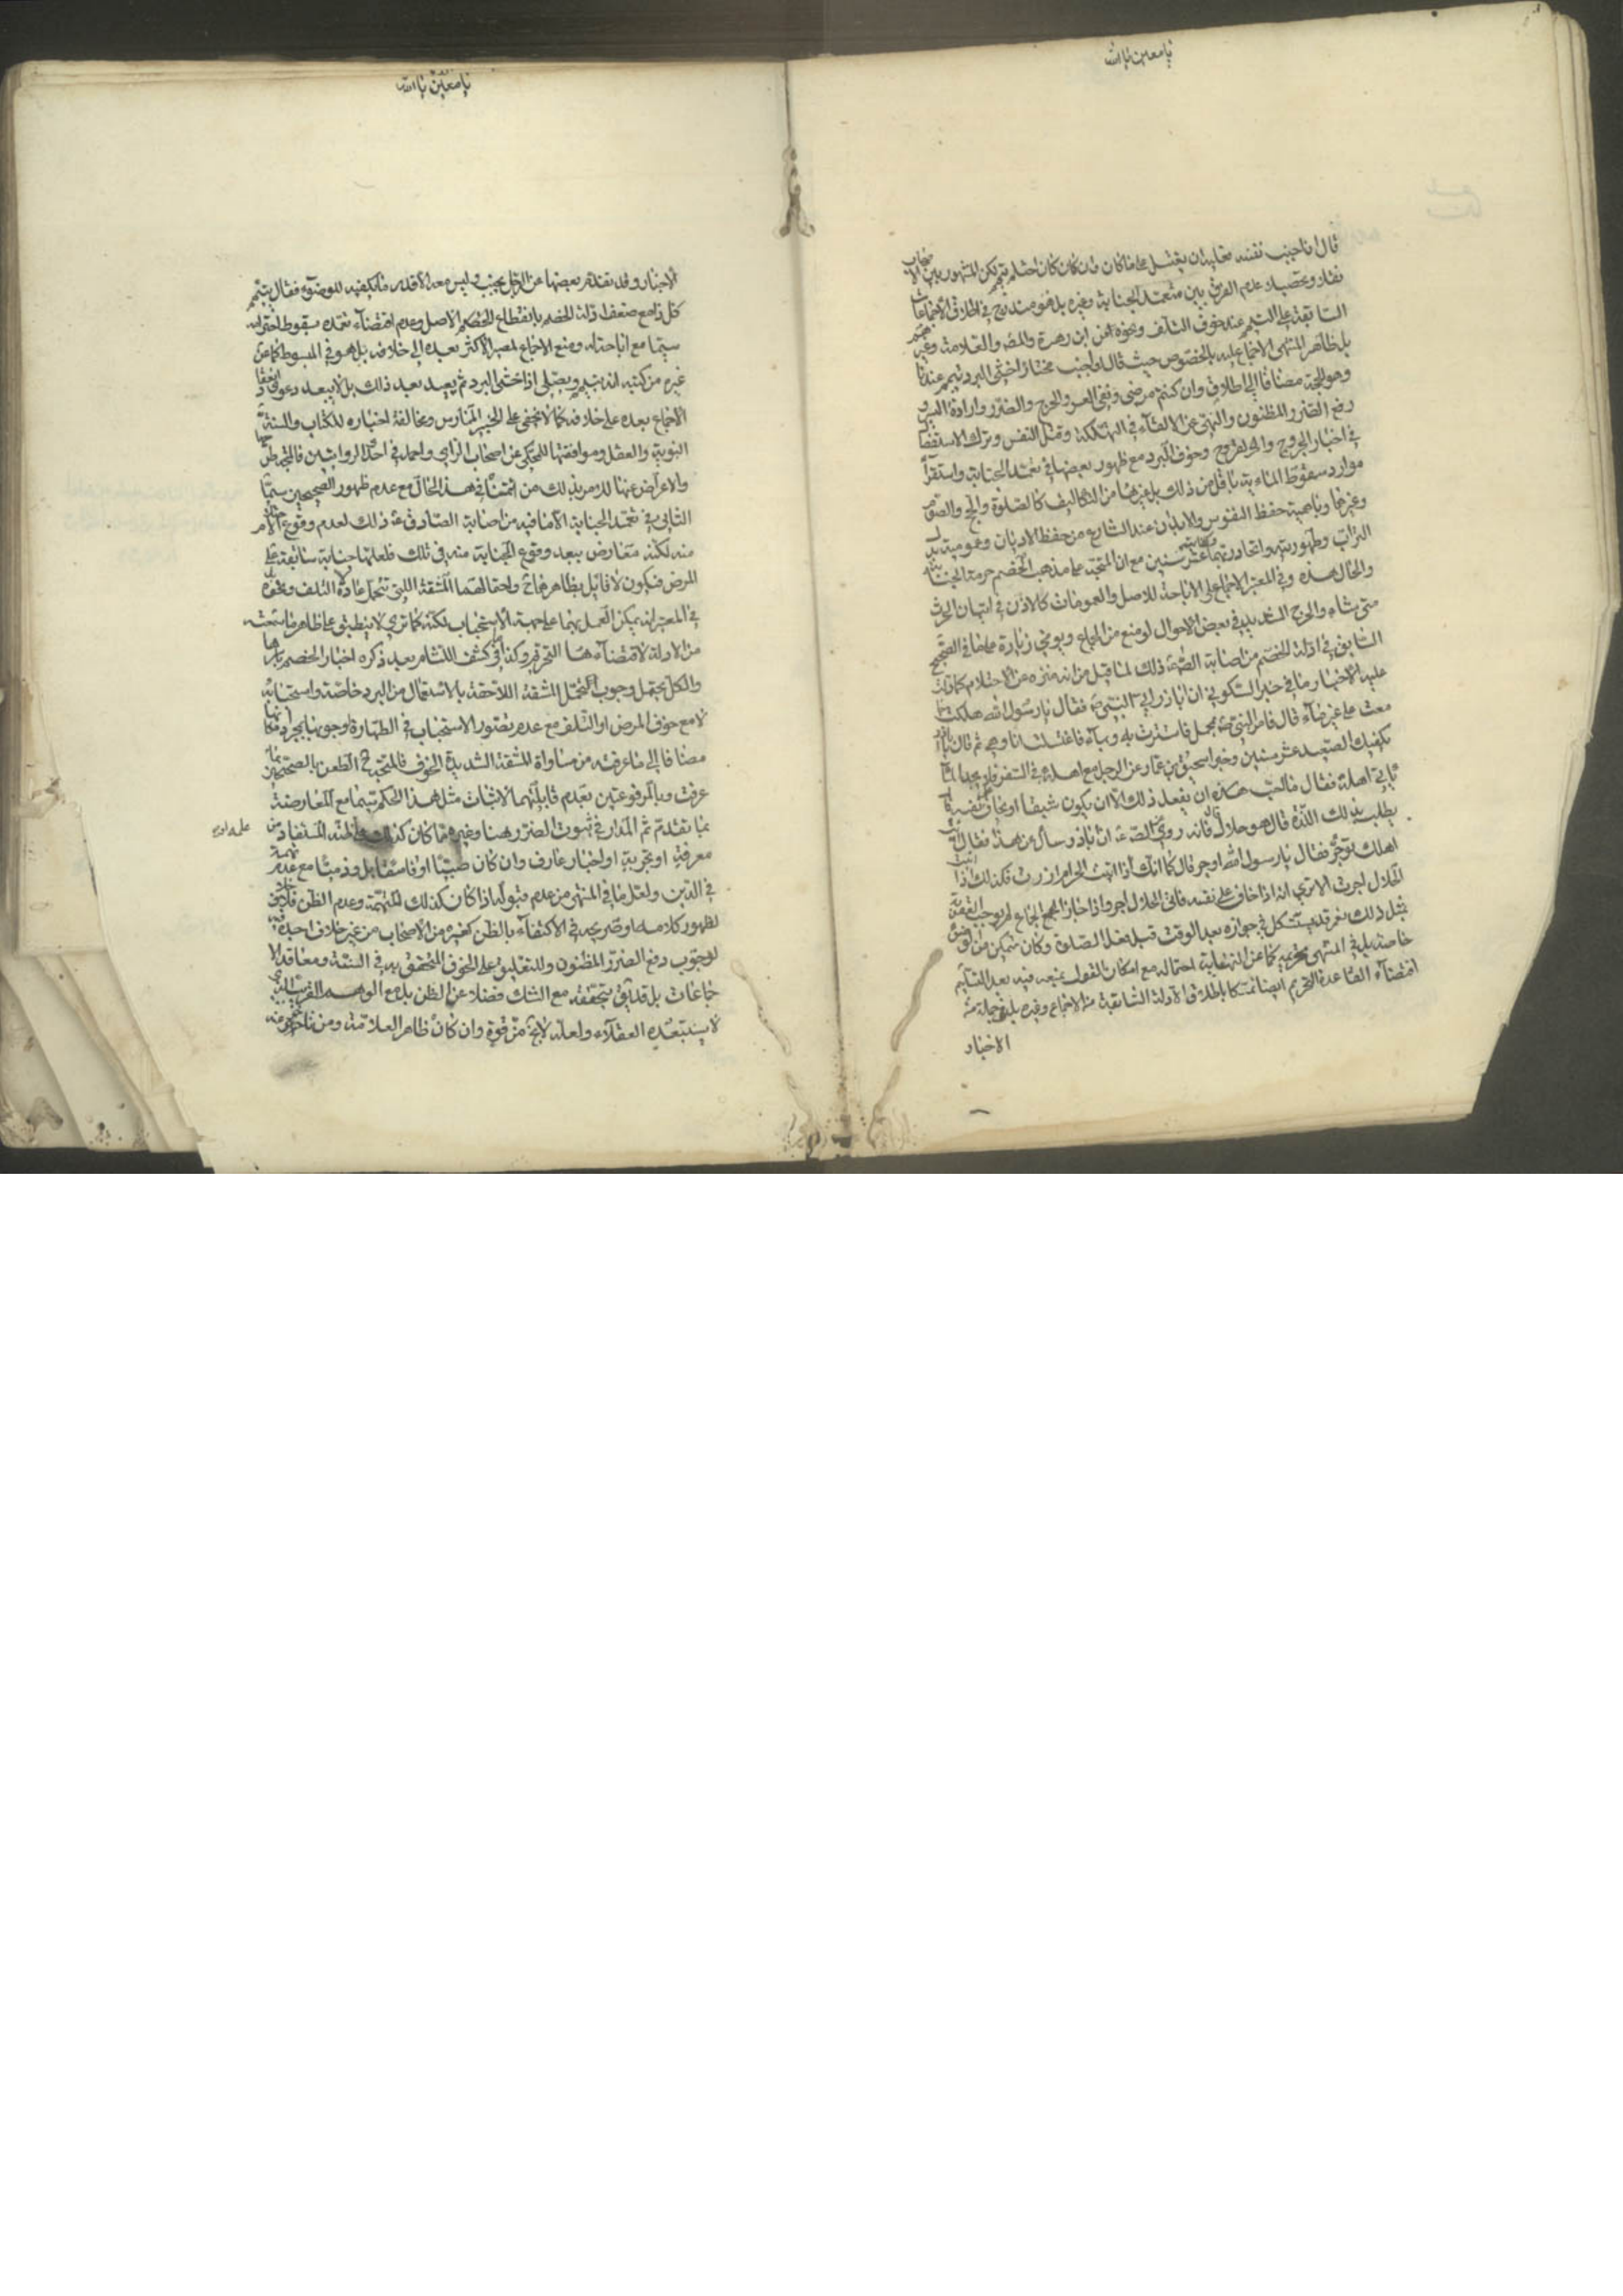 يا معين يا الله
قال ان اجنب نفسه فعليه ان يغتسل على ما كان وان كان احتلم تيمم لكن المشهور بين الاصحاب
نقلا وتحصيلا عدم الفرق بين متعمد الجنابة وغيره بل هو مندرج في اطلاق الاجماعات
السابقة على التيمم عند خوف التلف ونحوه من ابن زهرة والمصـ والعلامة وغيرهم
بل ظاهر المنتهى الاجماع عليه بالخصوص حيث قال لو اجنب مختارا خشي البرد تيمم عندنا
وهو الحجة مضافا الى اطلاق وان كنتم مرضى ونفي العسر والحرج والضرر وارادة اليسر و
رفع الضرر المظنون والنهي عن الالقاء في التهلكة وقتل النفس وترك الاستفصال
في اخبار الجروح والقروح وخوف البرد مع ظهور بعضها في تعمد الجنابة واستقراء
موارد سقوط المائية باقل من ذلك بل غيرها من التكاليف كالصلوة والحج والصوم
وغيرها وباهمية حفظ النفوس والابدان عند الشارع من حفظ الاديان وعمومية بدلية
التراب وطهوريته واتحاد ربهما وكفايته عشر سنين مع ان المتجه على مذهب الخصم حرمة الجنابة
والحال هذه وفي المعتبر الاجماع على الاباحة للاصل والعمومات كالاذن في اتيان الحرث
متى شاء والحرج الشديد في بعض الاحوال لو منع من الجماع ويومي زيادة على ما في الصحيح
السابق في ادلة الخصم من اصابة الصـ ع ذلك لما قيل من انه منزه عن الاحتلام كما دلت
عليه الاخبار ما في خبر السكوني ان اباذر اتى النبي ص فقال يا رسول الله هلكت جا
معت على غير ماء قال فامر النبي ص بمحمل فاستترت به وبماء فاغتسلت انا وهي ثم قال يا اباذر
يكفيك الصعيد عشر سنين وخبر اسحق بن عمار عن الرجل مع اهله في السفر فلا يجد الماء
ياتي اهله فقال ما احب له ان يفعل ذلك الا ان يكون شبقا او يخاف على نفسه قال
يطلب بذلك اللذة قال هو حلال قال فانه روي عن الصـ ع ان اباذر سأل عن هذا فقال ائت
اهلك توجر فقال يا رسول الله واوجر قال كما انك اذا اتيت الحرام ازرت فكذلك اذا اتيت
الحلال اجرت الا ترى انه اذا خاف على نفسه فاتى الحلال اجر واذا جاز الجماع لم يوجب العقوبة
بمثل ذلك نعم قد يستشكل في جوازه بعد الوقت قبل فعل الصلوة وكان متمكن من الوضوء
خاصة بل في المنتهى تحريمه كما عن النهاية احتماله مع امكان القول بمنعه فيه بعد التسليم
اقتضاء القاعدة التحريم ايضا تمسكا باطلاق الادلة السابقة من الاجماع وغيره بل في جملة من
الاخبار
يا معين يا الله
الاخبار وقد تقدم بعضها عن الرجل يجنب وليس معه الا قدر ما يكفيه للوضوء فقال يتيمم
كل ذا مع ضعف ادلة الخصم بانقطاع الحكم الاصل وعدم اقتضاء تعمده سقوط احترامه
سيما مع اباحته له ومنع الاجماع لمصير الاكثر بعده الى خلافه بل هو في المبسوط كما عن
غيره من كتبه انه يتيمم ويصلي اذا خشي البرد ثم يعيد بعد ذلك بل لا يبعد دعوى انعقاد
الاجماع بعده على خلافه كما لا يخفى على الخبير الممارس ومخالفة اخباره للكتاب والسنة
النبوية والعقل وموافقتها للمحكي عن اصحاب الراي واحمد في احدى الروايتين فالمتجه طرحها
والاعراض عنها للامر بذلك من ائمتنا في هذا الحال مع عدم ظهور الصحيحين سيما
الثاني في تعمد الجنابة الا ما فيه من اصابة الصادق ع ذلك لعدم وقوع الاحتلام
منه لكنه معارض ببعد وقوع الجنابة منه في تلك فلعلها جنابة سابقة على
المرض فيكون لا قائل بظاهرهما ح واحتمالهما المشقة التي تتحمل عادة لا التلف ونحوه
في المعتبر انه يمكن العمل بهما على جهة الاستحباب لكنه كما ترى لا ينطبق على ظاهر ما سمعته
من الادلة لاقتضائها التحريم وكذا في كشف اللثام بعد ذكره اخبار الخصم باسرها
والكل يحتمل وجوب تحمل المشقة اللاحقة بالاستعمال من البرد خاصة واستحبابه
لا مع خوف المرض او التلف مع عدم تصور الاستحباب في الطهارة لوجوبها بمجرد امكانها
مضافا الى ما عرفته من مساواة المشقة الشديدة الخوف فالمتجه ح الطعن بالصحيحين بما
عرفت وبالمرفوعتين بعدم قابليتهما لاثبات مثل هذا الحكم سيما مع المعارضة
بما تقدم ثم المدار في ثبوت الضرر هنا وغيره مما كان كذلك على ظنه المستفاد من
معرفة او تجربة او اخبار عارف وان كان صبيا او فاسقا بل وذميا مع عدم تهمة
في الدين ولعل ما في المنتهى من عدم قبوله اذا كان كذلك للتهمة وعدم الظن فلا خلاف
لظهور كلامه او صريحه في الاكتفاء بالظن كغيره من الاصحاب من غير خلاف اجده فيه
لوجوب دفع الضرر المظنون وللتعليق على الخوف المتحقق به في السنة ومعاقد الا
جماعات بل قد يق بتحققه مع الشك فضلا عن الظن بل مع الوهم القريب الذي
لا يستبعده العقلاء ولعله لا يخ من قوة وان كان ظاهر العلامة ومن تاخر عنه